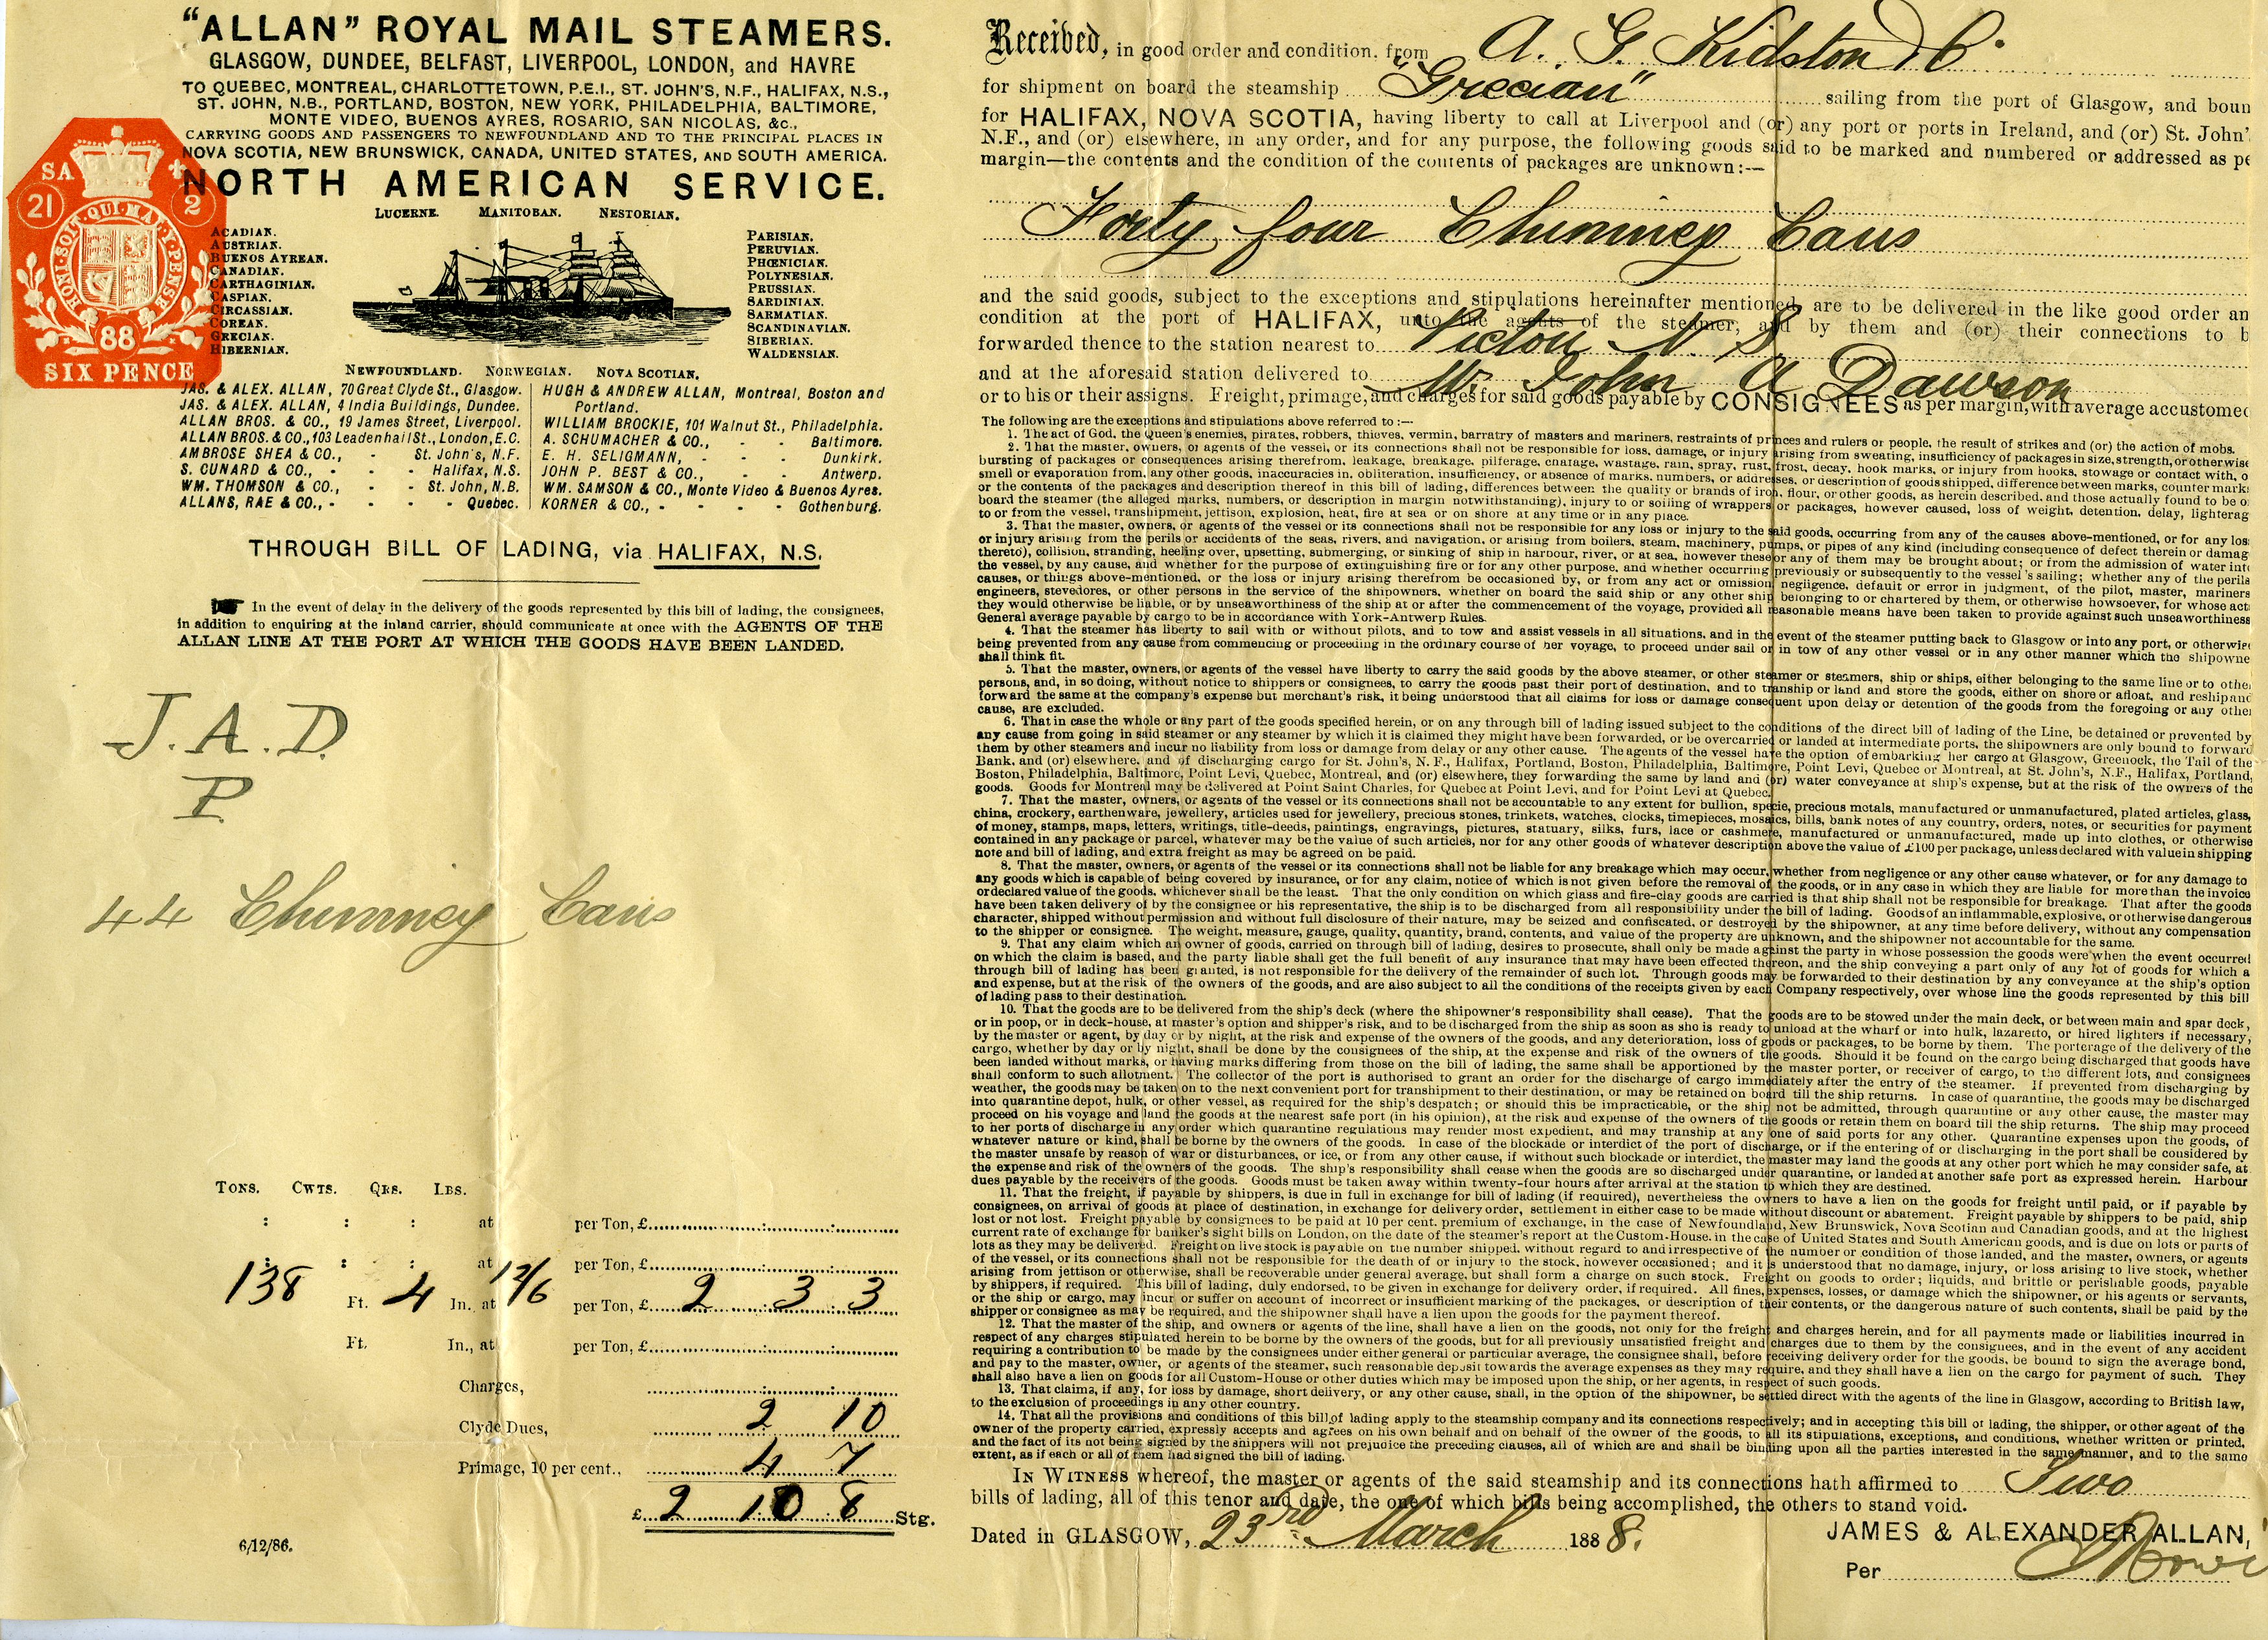 "ALLAN" ROYAL MAIL STEAMERS.
GLASGOW, DUNDEE, BELFAST, LIVERPOOL, LONDON, and HAVRE
TO QUEBEC, MONTREAL, CHARLOTTETOWN, P.E.I., ST. JOHN'S, N.F., HALIFAX, N.S.,
ST. JOHN, N.B., PORTLAND, BOSTON, NEW YORK, PHILADELPHIA, BALTIMORE,
MONTE VIDEO, BUENOS AYRES, ROSARIO, SAN NICOLAS, &c.,
CARRYING GOODS AND PASSENGERS TO NEWFOUNDLAND AND TO THE PRINCIPAL PLACES IN
NOVA SCOTIA, NEW BRUNSWICK, CANADA, UNITED STATES, AND SOUTH AMERICA.
NORTH AMERICAN SERVICE.
SA
21 2
HONI·SOIT·QUI·MAL·Y·PENSE
88
SIX PENCE
LUCERNE. MANITOBAN. NESTORIAN.
ACADIAN.
AUSTRIAN.
BUENOS AYREAN.
CANADIAN.
CARTHAGINIAN.
CASPIAN.
CIRCASSIAN.
COREAN.
GRECIAN.
HIBERNIAN.
PARISIAN.
PERUVIAN.
PHŒNICIAN.
POLYNESIAN.
PRUSSIAN.
SARDINIAN.
SARMATIAN.
SCANDINAVIAN.
SIBERIAN.
WALDENSIAN.
NEWFOUNDLAND. NORWEGIAN. NOVA SCOTIAN.
JAS. & ALEX. ALLAN, 70 Great Clyde St., Glasgow.
JAS. & ALEX. ALLAN, 4 India Buildings, Dundee.
ALLAN BROS. & CO., 19 James Street, Liverpool.
ALLAN BROS. & CO., 103 Leadenhall St., London, E.C.
AMBROSE SHEA & CO., - St. John's, N.F.
S. CUNARD & CO., - - - Halifax, N.S.
WM. THOMSON & CO., - - St. John, N.B.
ALLANS, RAE & CO., - - - Quebec.
HUGH & ANDREW ALLAN, Montreal, Boston and
Portland.
WILLIAM BROCKIE, 101 Walnut St., Philadelphia.
A. SCHUMACHER & CO., - - Baltimore.
E. H. SELIGMANN, - - - Dunkirk.
JOHN P. BEST & CO., - - Antwerp.
WM. SAMSON & CO., Monte Video & Buenos Ayres.
KORNER & CO., - - - - Gothenburg.
THROUGH BILL OF LADING, via HALIFAX, N.S.
In the event of delay in the delivery of the goods represented by this bill of lading, the consignees,
in addition to enquiring at the inland carrier, should communicate at once with the AGENTS OF THE
ALLAN LINE AT THE PORT AT WHICH THE GOODS HAVE BEEN LANDED.
J.A.D.
P
44 Chimney Cans
TONS. CWTS. QRS. LBS.
: : : at per Ton, £ : :
: : : at per Ton, £ : :
138 Ft. 4 In. at 12/6 per Ton, £ 2 : 3 : 3
Ft. In., at per Ton, £ : :
Charges, : :
Clyde Dues, 2 10
Primage, 10 per cent., 4 7
£ 2 10 8 Stg.
6/12/86.
Received, in good order and condition, from A. G. Kidston & Co
for shipment on board the steamship "Grecian" sailing from the port of Glasgow, and boun
for HALIFAX, NOVA SCOTIA, having liberty to call at Liverpool and (or) any port or ports in Ireland, and (or) St. John'
N.F., and (or) elsewhere, in any order, and for any purpose, the following goods said to be marked and numbered or addressed as pe
margin—the contents and the condition of the contents of packages are unknown:—
Forty four Chimney Cans
and the said goods, subject to the exceptions and stipulations hereinafter mentioned, are to be delivered in the like good order an
condition at the port of HALIFAX, unto the agents of the steamer, and by them and (or) their connections to b
forwarded thence to the station nearest to Pictou N.S
and at the aforesaid station delivered to Mr. John A Dawson
or to his or their assigns. Freight, primage, and charges for said goods payable by CONSIGNEES as per margin, with average accustomed
The following are the exceptions and stipulations above referred to:—
1. The act of God, the Queen's enemies, pirates, robbers, thieves, vermin, barratry of masters and mariners, restraints of princes and rulers or people, the result of strikes and (or) the action of mobs.
2. That the master, owners, or agents of the vessel or its connections shall not be responsible for loss, damage, or injury arising from sweating, insufficiency of packages in size, strength, or otherwise
bursting of packages or consequences arising therefrom, leakage, breakage, pilferage, wastage, rain, spray, rust, frost, decay, hook marks, or injury from hooks, stowage or contact with, o
smell or evaporation from, any other goods, inaccuracies in, obliteration, insufficiency, or absence of marks, numbers, or addresses, or description of goods shipped, difference between marks, counter marks
or the contents of the packages and description thereof in this bill of lading, differences between the quality or brands of iron, flour, or other goods, as herein described, and those actually found to be o
board the steamer (the alleged marks, numbers, or description in margin notwithstanding), injury to or soiling of wrappers or packages, however caused, loss of weight, detention, delay, lighterag
to or from the vessel, transhipment, jettison, explosion, heat, fire at sea or on shore at any time or in any place.
3. That the master, owners, or agents of the vessel or its connections shall not be responsible for any loss or injury to the said goods, occurring from any of the causes above-mentioned, or for any los
or injury arising from the perils or accidents of the seas, rivers, and navigation, or arising from boilers, steam, machinery, pumps, or pipes of any kind (including consequence of defect therein or damag
thereto), collision, stranding, heeling over, upsetting, submerging, or sinking of ship in harbour, river, or at sea, however these or any of them may be brought about; or from the admission of water int
the vessel, by any cause, and whether for the purpose of extinguishing fire or for any other purpose, and whether occurring previously or subsequently to the vessel's sailing; whether any of the perils
causes, or things above-mentioned, or the loss or injury arising therefrom be occasioned by, or from any act or omission, negligence, default or error in judgment, of the pilot, master, mariners
engineers, stevedores, or other persons in the service of the shipowners, whether on board the said ship or any other ship belonging to or chartered by them, or otherwise howsoever, for whose act
they would otherwise be liable, or by unseaworthiness of the ship at or after the commencement of the voyage, provided all reasonable means have been taken to provide against such unseaworthiness
General average payable by cargo to be in accordance with York-Antwerp Rules.
4. That the steamer has liberty to sail with or without pilots, and to tow and assist vessels in all situations, and in the event of the steamer putting back to Glasgow or into any port, or otherwise
being prevented from any cause from commencing or proceeding in the ordinary course of her voyage, to proceed under sail or in tow of any other vessel or in any other manner which the shipowne
shall think fit.
5. That the master, owners, or agents of the vessel have liberty to carry the said goods by the above steamer, or other steamer or steamers, ship or ships, either belonging to the same line or to othe
persons, and, in so doing, without notice to shippers or consignees, to carry the goods past their port of destination, and to tranship or land and store the goods, either on shore or afloat, and reship and
forward the same at the company's expense but merchant's risk, it being understood that all claims for loss or damage consequent upon delay or detention of the goods from the foregoing or any other
cause, are excluded.
6. That in case the whole or any part of the goods specified herein, or on any through bill of lading issued subject to the conditions of the direct bill of lading of the Line, be detained or prevented by
any cause from going in said steamer or any steamer by which it is claimed they might have been forwarded, or be overcarried or landed at intermediate ports, the shipowners are only bound to forward
them by other steamers and incur no liability from loss or damage from delay or any other cause. The agents of the vessel have the option of embarking her cargo at Glasgow, Greenock, the Tail of the
Bank, and (or) elsewhere, and of discharging cargo for St. John's, N.F., Halifax, Portland, Boston, Philadelphia, Baltimore, Point Levi, Quebec or Montreal, at St. John's, N.F., Halifax, Portland,
Boston, Philadelphia, Baltimore, Point Levi, Quebec, Montreal, and (or) elsewhere, they forwarding the same by land and (or) water conveyance at ship's expense, but at the risk of the owners of the
goods. Goods for Montreal may be delivered at Point Saint Charles, for Quebec at Point Levi, and for Point Levi at Quebec.
7. That the master, owners, or agents of the vessel or its connections shall not be accountable to any extent for bullion, specie, precious metals, manufactured or unmanufactured, plated articles, glass,
china, crockery, earthenware, jewellery, articles used for jewellery, precious stones, trinkets, watches, clocks, timepieces, mosaics, bills, bank notes of any country, orders, notes, or securities for payment
of money, stamps, maps, letters, writings, title-deeds, paintings, engravings, pictures, statuary, silks, furs, lace or cashmere, manufactured or unmanufactured, made up into clothes, or otherwise
contained in any package or parcel, whatever may be the value of such articles, nor for any other goods of whatever description above the value of £100 per package, unless declared with value in shipping
note and bill of lading, and extra freight as may be agreed on be paid.
8. That the master, owners, or agents of the vessel or its connections shall not be liable for any breakage which may occur, whether from negligence or any other cause whatever, or for any damage to
any goods which is capable of being covered by insurance, or for any claim, notice of which is not given before the removal of the goods, or in any case in which they are liable for more than the invoice
or declared value of the goods, whichever shall be the least. That the only condition on which glass and fire-clay goods are carried is that ship shall not be responsible for breakage. That after the goods
have been taken delivery of by the consignee or his representative, the ship is to be discharged from all responsibility under the bill of lading. Goods of an inflammable, explosive, or otherwise dangerous
character, shipped without permission and without full disclosure of their nature, may be seized and confiscated, or destroyed by the shipowner, at any time before delivery, without any compensation
to the shipper or consignee. The weight, measure, gauge, quality, quantity, brand, contents, and value of the property are unknown, and the shipowner not accountable for the same.
9. That any claim which an owner of goods, carried on through bill of lading, desires to prosecute, shall only be made against the party in whose possession the goods were when the event occurred
on which the claim is based, and the party liable shall get the full benefit of any insurance that may have been effected thereon, and the ship conveying a part only of any lot of goods for which a
through bill of lading has been granted, is not responsible for the delivery of the remainder of such lot. Through goods may be forwarded to their destination by any conveyance at the ship's option
and expense, but at the risk of the owners of the goods, and are also subject to all the conditions of the receipts given by each Company respectively, over whose line the goods represented by this bill
of lading pass to their destination.
10. That the goods are to be delivered from the ship's deck (where the shipowner's responsibility shall cease). That the goods are to be stowed under the main deck, or between main and spar deck,
or in poop, or in deck-house, at master's option and shipper's risk, and to be discharged from the ship as soon as she is ready to unload at the wharf or into hulk, lazaretto, or hired lighters if necessary,
by the master or agent, by day or by night, at the risk and expense of the owners of the goods, and any deterioration, loss of goods or packages, to be borne by them. The porterage of the delivery of the
cargo, whether by day or by night, shall be done by the consignees of the ship, at the expense and risk of the owners of the goods. Should it be found on the cargo being discharged that goods have
been landed without marks, or having marks differing from those on the bill of lading, the same shall be apportioned by the master porter, or receiver of cargo, to the different lots, and consignees
shall conform to such allotment. The collector of the port is authorised to grant an order for the discharge of cargo immediately after the entry of the steamer. If prevented from discharging by
weather, the goods may be taken on to the next convenient port for transhipment to their destination, or may be retained on board till the ship returns. In case of quarantine, the goods may be discharged
into quarantine depot, hulk, or other vessel, as required for the ship's despatch; or should this be impracticable, or the ship not be admitted, through quarantine or any other cause, the master may
proceed on his voyage and land the goods at the nearest safe port (in his opinion), at the risk and expense of the owners of the goods or retain them on board till the ship returns. The ship may proceed
to her ports of discharge in any order which quarantine regulations may render most expedient, and may tranship at any one of said ports for any other. Quarantine expenses upon the goods, of
whatever nature or kind, shall be borne by the owners of the goods. In case of the blockade or interdict of the port of discharge, or if the entering of or discharging in the port shall be considered by
the master unsafe by reason of war or disturbances, or ice, or from any other cause, if without such blockade or interdict, the master may land the goods at any other port which he may consider safe, at
the expense and risk of the owners of the goods. The ship's responsibility shall cease when the goods are so discharged under quarantine, or landed at another safe port as expressed herein. Harbour
dues payable by the receivers of the goods. Goods must be taken away within twenty-four hours after arrival at the station to which they are destined.
11. That the freight, if payable by shippers, is due in full in exchange for bill of lading (if required), nevertheless the owners to have a lien on the goods for freight until paid, or if payable by
consignees, on arrival of goods at place of destination, in exchange for delivery order, settlement in either case to be made without discount or abatement. Freight payable by shippers to be paid, ship
lost or not lost. Freight payable by consignees to be paid at 10 per cent. premium of exchange, in the case of Newfoundland, New Brunswick, Nova Scotian and Canadian goods, and at the highest
current rate of exchange for banker's sight bills on London, on the date of the steamer's report at the Custom-House, in the case of United States and South American goods, and is due on lots or parts of
lots as they may be delivered. Freight on live stock is payable on the number shipped, without regard to and irrespective of the number or condition of those landed, and the master, owners, or agents
of the vessel, or its connections shall not be responsible for the death of or injury to the stock, however occasioned; and it is understood that no damage, injury, or loss arising to live stock, whether
arising from jettison or otherwise, shall be recoverable under general average, but shall form a charge on such stock. Freight on goods to order; liquids, and brittle or perishable goods, payable
by shippers, if required. This bill of lading, duly endorsed, to be given in exchange for delivery order, if required. All fines, expenses, losses, or damage which the shipowner, or his agents or servants,
or the ship or cargo, may incur or suffer on account of incorrect or insufficient marking of the packages, or description of their contents, or the dangerous nature of such contents, shall be paid by the
shipper or consignee as may be required, and the shipowner shall have a lien upon the goods for the payment thereof.
12. That the master of the ship, and owners or agents of the line, shall have a lien on the goods, not only for the freight and charges herein, and for all payments made or liabilities incurred in
respect of any charges stipulated herein to be borne by the owners of the goods, but for all previously unsatisfied freight and charges due to them by the consignees, and in the event of any accident
requiring a contribution to be made by the consignees under either general or particular average, the consignee shall, before receiving delivery order for the goods, be bound to sign the average bond,
and pay to the master, owner, or agents of the steamer, such reasonable deposit towards the average expenses as they may require, and they shall have a lien on the cargo for payment of such. They
shall also have a lien on goods for all Custom-House or other duties which may be imposed upon the ship, or her agents, in respect of such goods.
13. That claims, if any, for loss by damage, short delivery, or any other cause, shall, in the option of the shipowner, be settled direct with the agents of the line in Glasgow, according to British law,
to the exclusion of proceedings in any other country.
14. That all the provisions and conditions of this bill of lading apply to the steamship company and its connections respectively; and in accepting this bill of lading, the shipper, or other agent of the
owner of the property carried, expressly accepts and agrees on his own behalf and on behalf of the owner of the goods, to all its stipulations, exceptions, and conditions, whether written or printed,
and the fact of its not being signed by the shippers will not prejudice the preceding clauses, all of which are and shall be binding upon all the parties interested in the same manner, and to the same
extent, as if each or all of them had signed the bill of lading.
IN WITNESS whereof, the master or agents of the said steamship and its connections hath affirmed to Two
bills of lading, all of this tenor and date, the one of which bills being accomplished, the others to stand void.
Dated in GLASGOW, 23rd March 1888.
JAMES & ALEXANDER ALLAN,
Per